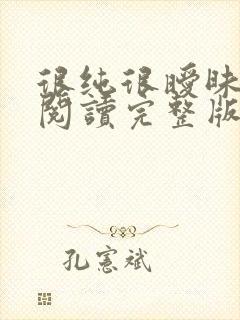 很纯很曖昧
閱讀完整版
孔憲斌